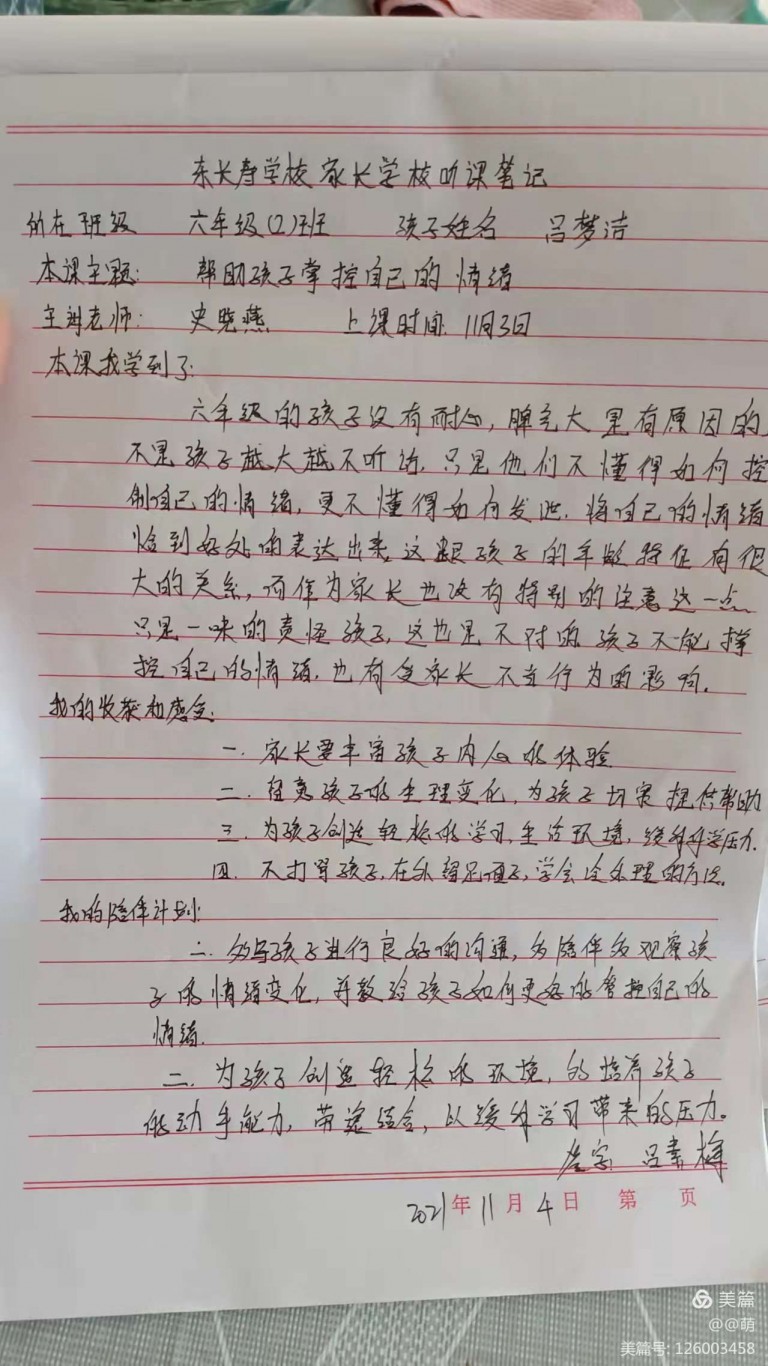 东长寿学校家长学校听课笔记
所在班级 六年级(2)班 孩子姓名 吕梦洁
本课主题: 帮助孩子掌控自己的情绪
主讲老师: 史晓燕 上课时间: 11月3日
本课我学到了:
六年级的孩子没有耐心,脾气大是有原因的,
不是孩子越大越不听话,只是他们不懂得如何控
制自己的情绪,更不懂得如何发泄,将自己的情绪
恰到好处的表达出来,这跟孩子的年龄特征有很
大的关系,而作为家长也没有特别的注意这一点
只是一味的责怪孩子,这也是不对的,孩子不能掌
控自己的情绪,也有受家长不当行为的影响。
我的收获和感受:
一. 家长要丰富孩子内心的体验
二. 孩子的生理变化,为孩子切实提供帮助
三. 为孩子创造轻松的学习,生活环境,缓解升学压力.
四. 不打骂孩子,在外留足面子,学会冷处理的方法.
我的陪伴计划:
一. 多与孩子进行良好的沟通,多陪伴多观察孩
子的情绪变化,并教给孩子如何更好的管控自己的
情绪.
二. 为孩子创造轻松的环境,多培养孩子
的动手能力,劳逸结合,以缓解学习带来的压力。
签字 吕素梅
2021年11月4日 第 页
美篇
@@萌
美篇号: 126003458